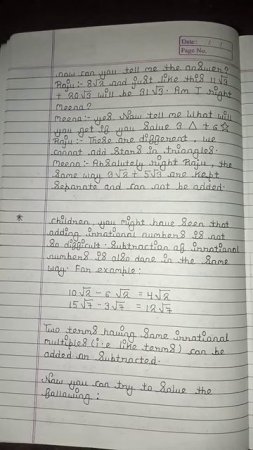 Date : / /
Page No.
now can you tell me the answer?
Raju :- 8√2 and just like this 11√3
+ 20√3 will be 31√3. Am I right
Meena?
Meena:- yes. Now tell me what will
you get if you solve 3 △ + 6 ☆
Raju :- These are different, we
cannot add stars in triangles.
Meena:- Absolutely right Raju, the
same way 3√2 + 5√3 are kept
separate and can not be added.
* children, you might have seen that
adding irrational numbers is not
so difficult. Subtraction of irrational
numbers is also done in the same
way. For example:
10√2 - 6√2 = 4√2
15√7 - 3√7 = 12√7
Two terms having same irrational
multiples (i.e like terms) can be
added or subtracted.
Now you can try to solve the
following :